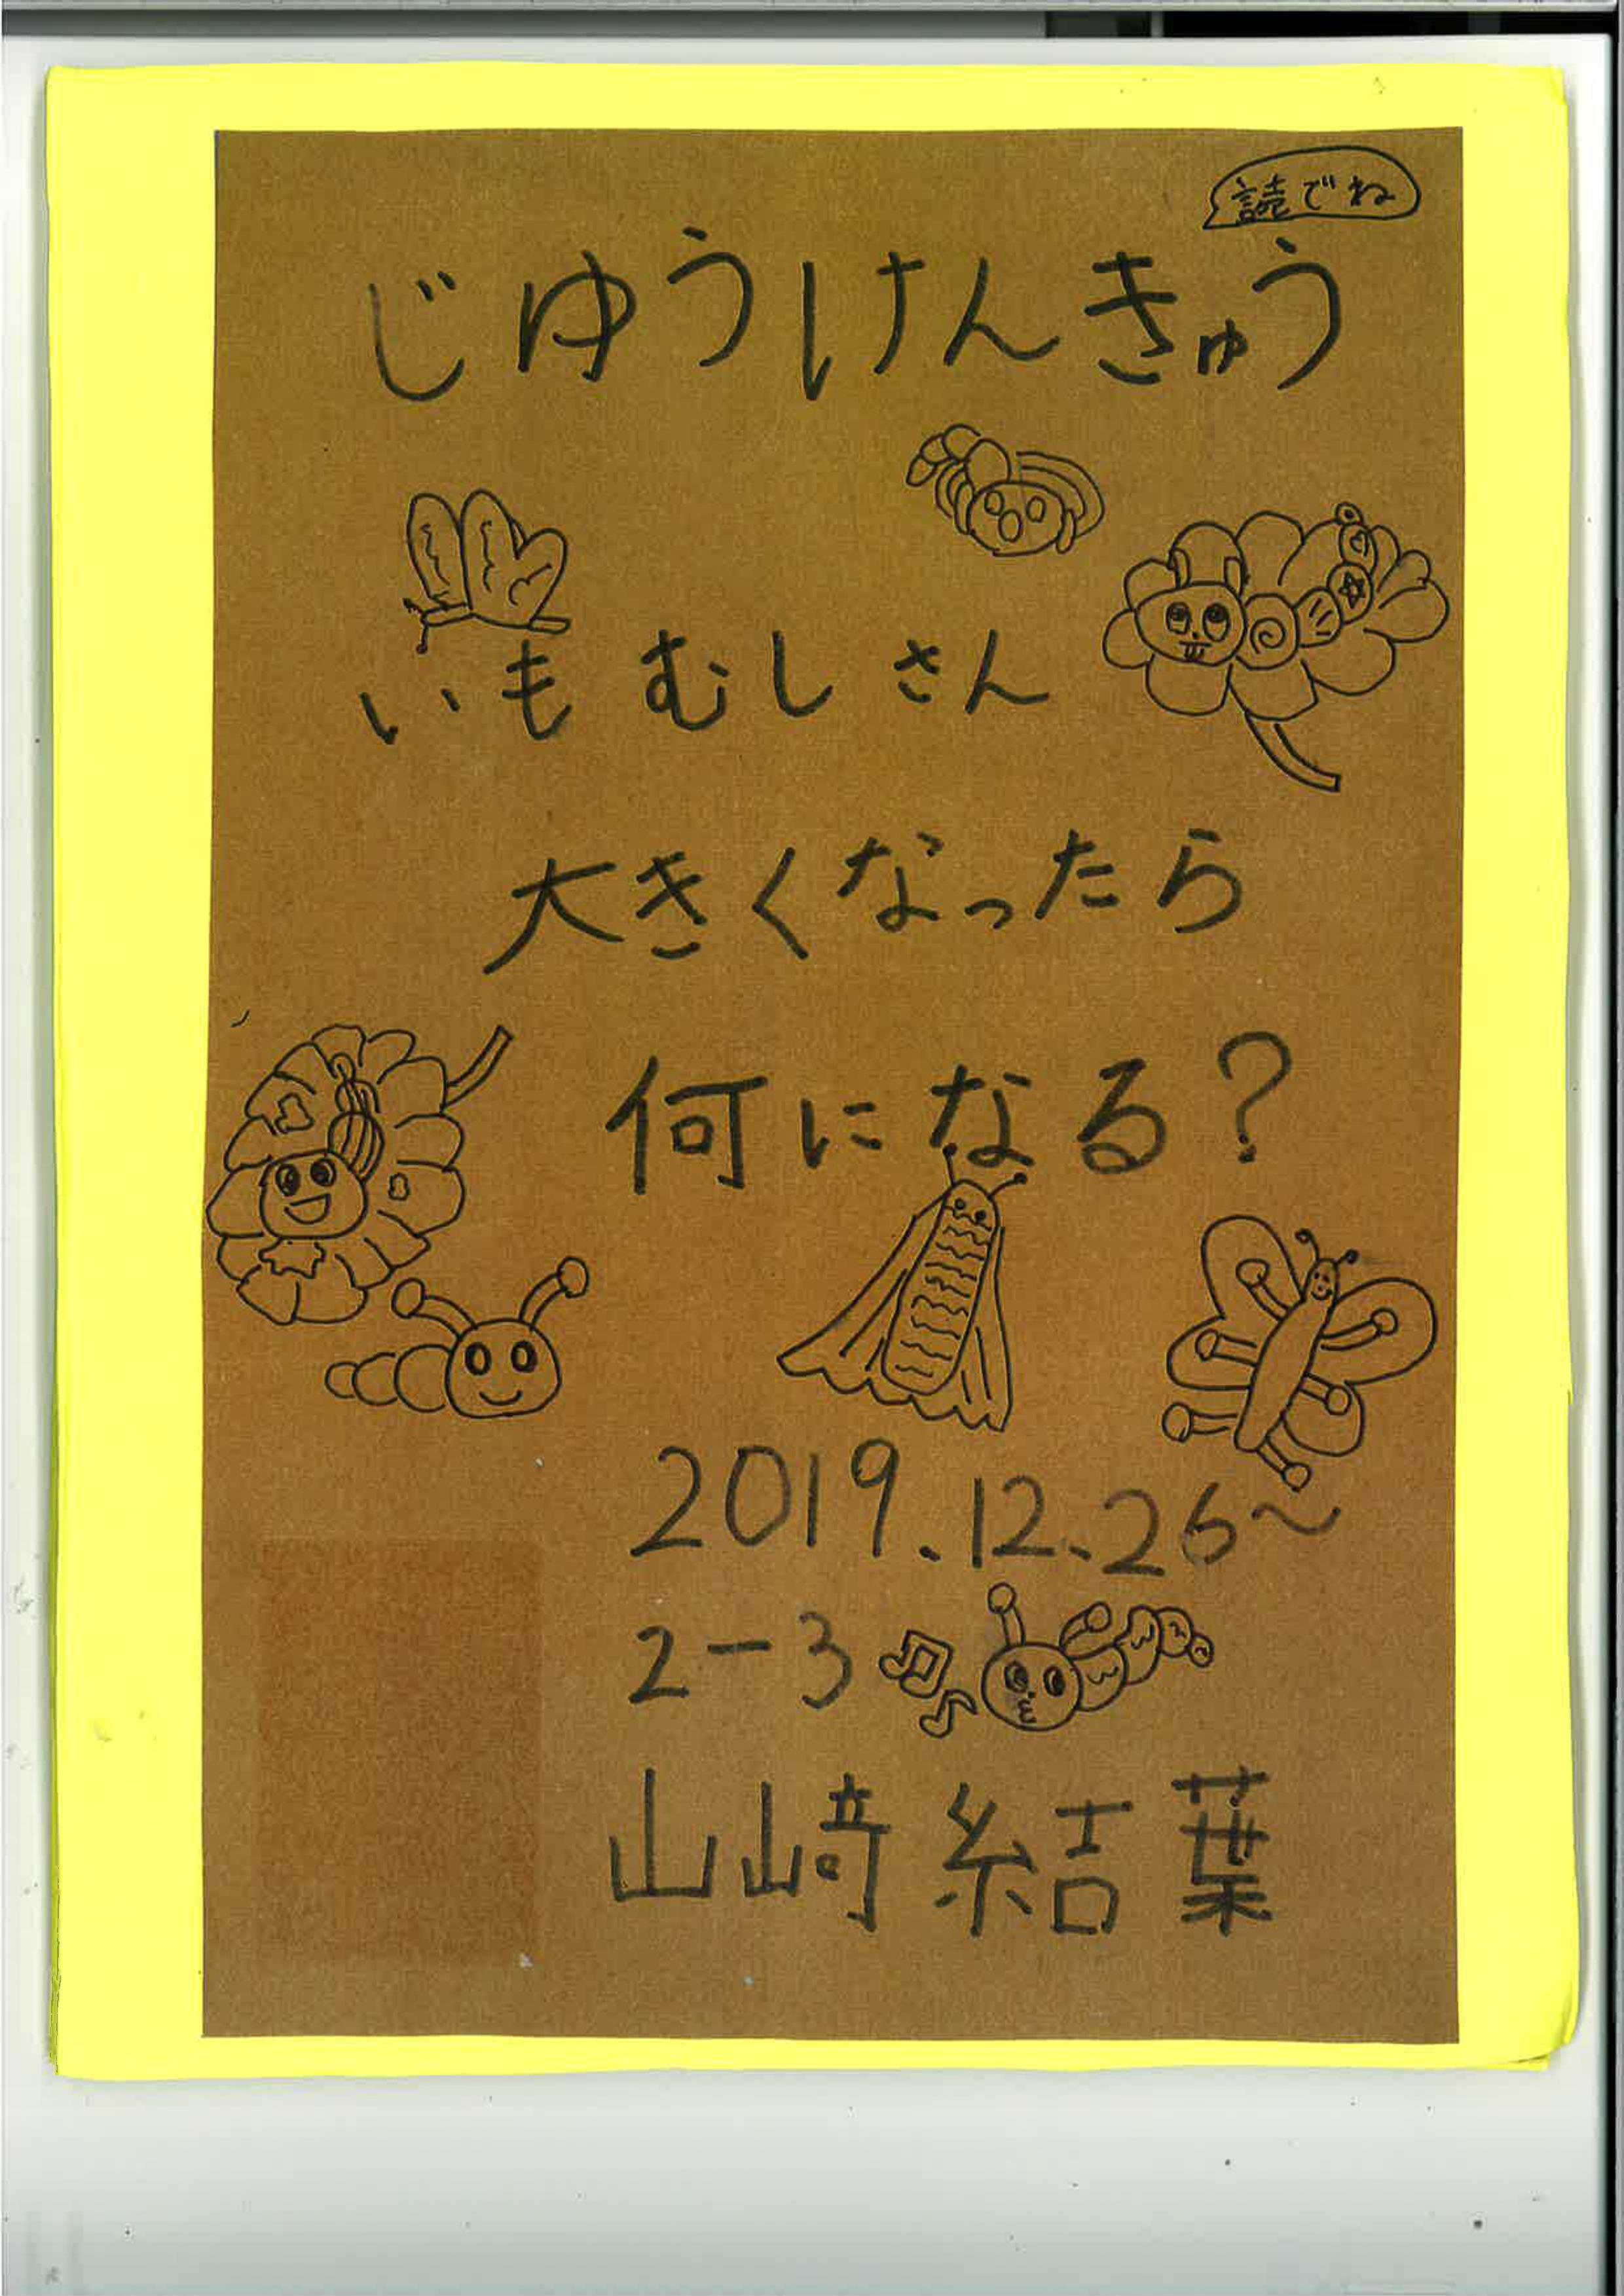 読でね
じゆうけんきゅう
いもむしさん
大きくなったら
何になる?
2019.12.26~
2-3
山﨑結葉